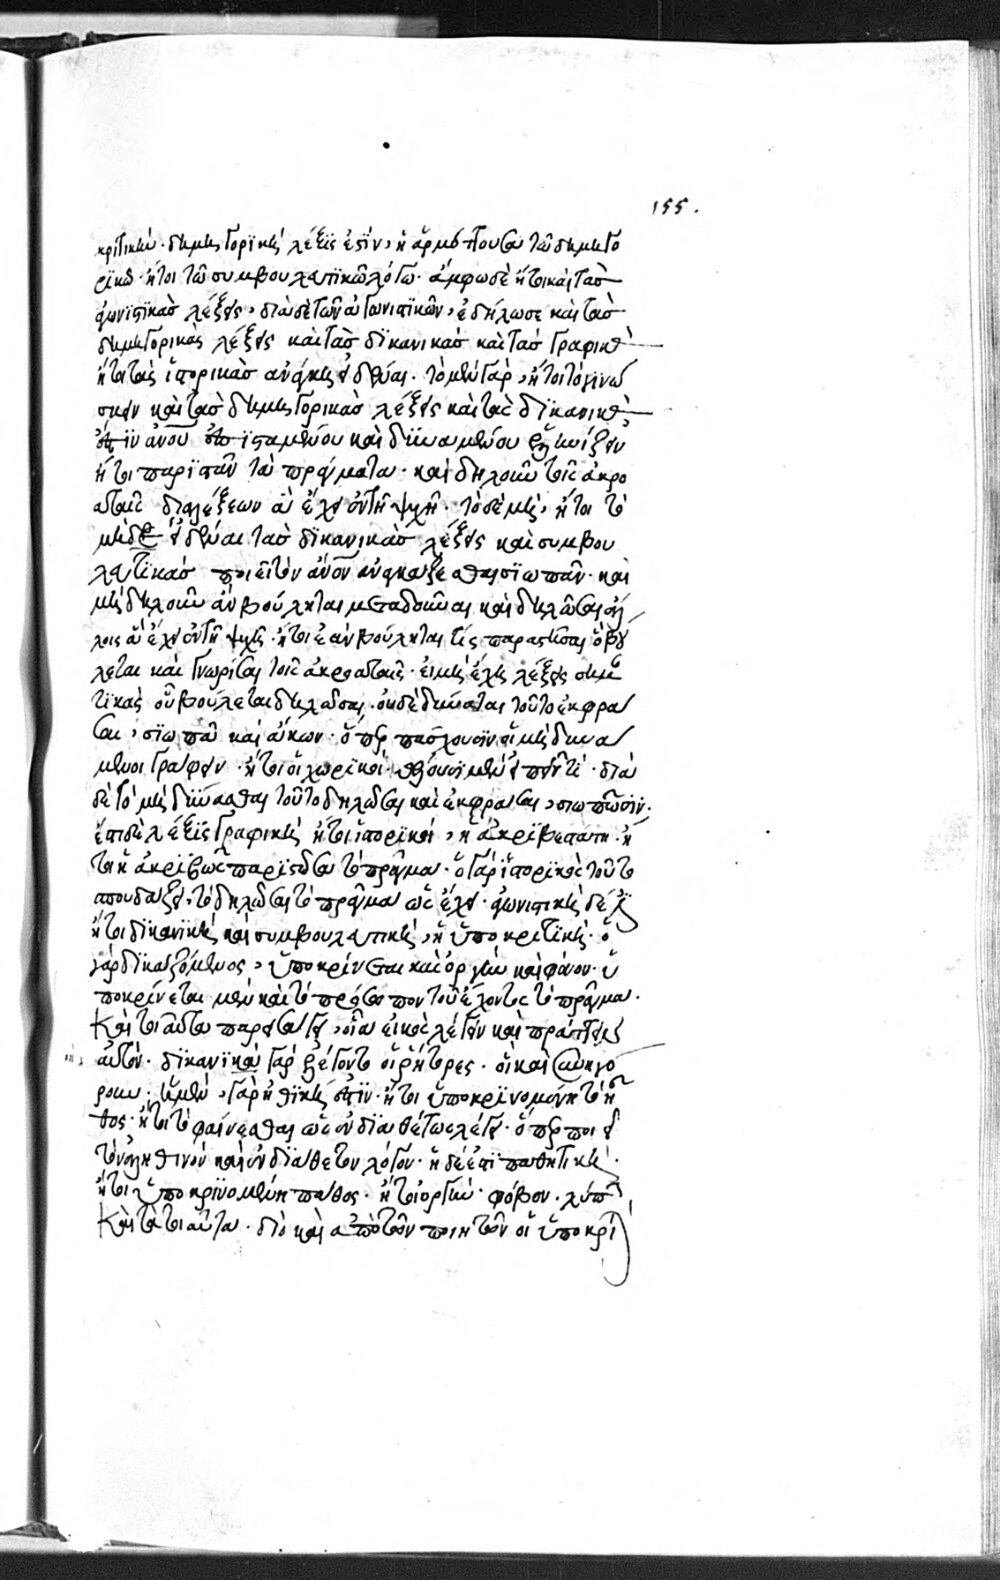 155.
κριτικήν· δημηγορικὴ λέξις ἐστὶν, ἡ ἁρμόττουσα τῶ δημηγο
ρικῶ ἤτοι τῶ συμβουλευτικῶ λόγω· ἄμφω δὲ ἤτοι καὶ τὰσ
ἀγωνιστικὰσ λέξεις, διὰ δὲ τῶν ἀγωνιστικῶν, ἐδήλωσε καὶ τὰσ
δημηγορικὰς λέξεις καὶ τὰσ δικανικὰσ καὶ τὰσ γραφικὰς
ἤτοι τὰς ἱστορικὰσ ἀνάγκη εἰδέναι. τὸ μὲν γὰρ, ἤτοι τὸ γινώ
σκειν καὶ τὰσ δημηγορικὰσ λέξεις καὶ τὰς δικανικὰς
ἐστὶν ἀνου ἐπισταμένου καὶ δυναμένου ἑλληνίζειν
ἤτοι παριστᾶν τὰ πράγματα· καὶ δηλοῦν τοῖς ἀκρο
αταῖς διαλέξεων ἃ ἔχει ἐν τῆ ψχῆ. τὸ δὲ μὴ, ἤτοι τὸ
μὴ δὲ εἰδέναι τὰσ δικανικὰσ λέξεις καὶ συμβου
λευτικὰσ ποιεῖ τὸν ἄνον ἀναγκάζεσθαι σιωπᾶν· καὶ
μὴ δηλοῦν ἂν βούληται μεταδοῦναι καὶ δηλῶσαι ἀλ
λοις ἃ ἔχει ἐν τῆ ψχῆ· ἤτοι ἐὰν βούληταί τις παραστῆσαι ὃ βού
λεται καὶ γνωρίσαι τοῖς ἀκροαταῖς· εἰ μὴ ἔχει λέξεις σημαν
τικὰς οὗ βούλεται δηλῶσαι· οὐδὲ δύναται τοῦτο ἐκφρά
σαι, σιωπᾶ καὶ ἄκων· ὅπερ πάσχουσιν οἱ μὴ δυνά
μενοι γράφειν· ἤτοι οἱ χωρικοὶ· θέλουσι μὲν εἰπεῖν τι· διὰ
δὲ τὸ μὴ δύνασθαι τοῦτο δηλῶσαι καὶ ἐκφράσαι, σιωπῶσιν·
ἔστι δὲ λέξις γραφικὴ ἤτοι ἱστορικὴ, ἡ ἀκριβεστάτη· ἤ
τοι ἡ ἀκριβῶς παριστῶσα τὸ πρᾶγμα· ὁ γὰρ ἱστορικὸς τοῦτο
σπουδάζει, τὸ δηλῶσαι τὸ πρᾶγμα ὡς ἔχει· ἀγωνιστικὴ δέ
ἤτοι δικανικὴ καὶ συμβουλευτικὴ, ἡ ὑποκριτικὴ· ὁ
γὰρ δικαζόμενος, ὑποκρίνεται καὶ ὀργὴν καὶ φόνον· ὑ
ποκρίνεται μὲν καὶ τὸ πρόσωπον τοῦ ἔχοντος τὸ πρᾶγμα.
καὶ τοιαῦτα παρεισάγει, οἷα εἰκὸς λέγειν καὶ πράττειν
αὐτόν· δικανικοὶ γὰρ ἐλέγοντο οἱ ῥήτορες· οἱ καὶ συνήγο
ροι· ἡ μὲν, γὰρ ἠθικὴ ἐστὶν· ἤτοι ὑποκρινομένη τὸ ἦ
θος· ἤτοι τὸ φαίνεσθαι ὡς ἐνδιαθέτως λέγει· ὅπερ ποιεῖ
τὸν ἀληθινὸν καὶ ἐνδιάθετον λόγον· ἡ δέ ἐστι παθητικὴ·
ἤτοι ὑποκρινομένη πάθος· ἤτοι ὀργὴν· φόβον· λύπην
καὶ τὰ τοιαῦτα· διὸ καὶ ἀπὸ τῶν ποιητῶν οἱ ὑποκρι